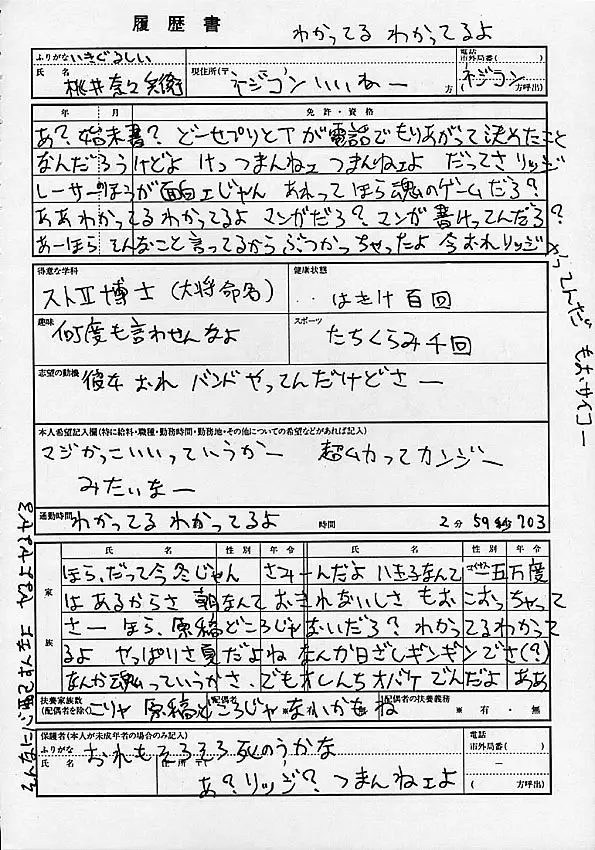 履歴書
わかってる わかってるよ
ふりがな いきぐるしい
氏名 桃井奈々
現住所(〒 ) ネジコン いいねー 方
電話 市外局番( ) ネジコン (方呼出)
年 月 免許・資格
あ?始末書?どーせプリとTが電話でもりあがって決めたこと
なんだろうけどよ けっ つまんねェ つまんねェよ だってさ リッジ
レーサーのほうが面白ェじゃん あれって ほら魂のゲームだろ?
ああ わかってる わかってるよ マンガだろ? マンガ 書けってんだろ?
あーほら てんなこと言ってるから ぶつかっちゃったよ 今 おれ リッジ
やってんだ もお サイコー
得意な学科 ストⅡ博士(大将命名)
健康状態 ‥はきけ百回
趣味 何度も言わせんなよ
スポーツ たちくらみ千回
志望の動機 彼女 おれ バンド やってんだけどさー
本人希望記入欄(特に給料・職種・勤務時間・勤務地・その他についての希望などがあれば記入)
マジ かっこいいっていうかー 超ムカってカンジー
みたいなー
通勤時間 わかってる わかってるよ 時間 2分 59秒703
氏名 性別 年令 氏名 性別 年令
家族
ほら、だって今冬じゃん さみーんだよ 八王子なんて 五万度
は あるからさ 朝なんて おきれないしさ もお こおっちゃって
さー ほら、原稿どころじゃないだろ? わかってるわかって
るよ やっぱりさ夏だよね なんか日ざしギンギンでさ(?)
なんか魂っていうかさ、でもオレんち オバケ でんだよ ああ
扶養家族数(配偶者を除く) こりゃ 原稿どころじゃないかもね
配偶者 ※
配偶者の扶養義務 ※ 有・無
保護者(本人が未成年者の場合のみ記入)
ふりがな おれもそろそろ死のうかな
氏名 住所(〒 ) あ?リッジ? つまんねェよ
電話 市外局番( ) ー (方呼出)